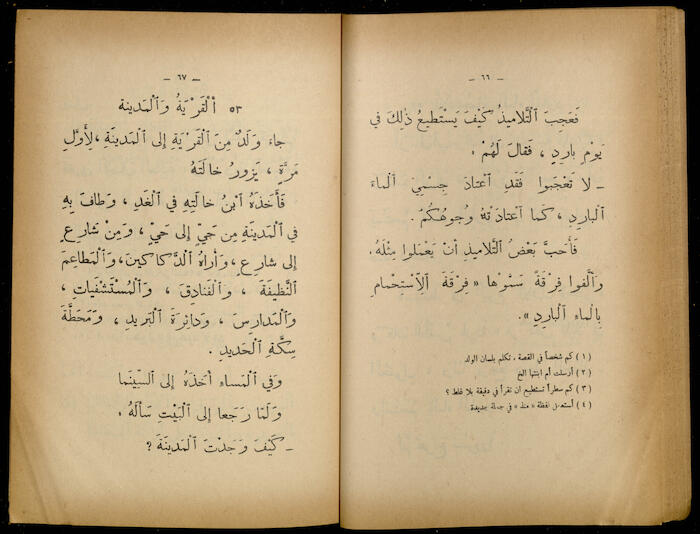 — ٦٦ —
فَعَجِبَ ٱلتَّلاميذُ كَيْفَ يَسْتَطيعُ ذٰلِكَ في
يَوْمٍ بارِدٍ ، فَقالَ لَهُمْ .
ـ لا تَعْجَبوا فَقَدِ ٱعْتادَ جِسْمِيَ ٱلْماءَ
ٱلْبارِدَ ، كَما ٱعْتادَتْهُ وُجوهُكُمْ .
فَأَحَبَّ بَعْضُ ٱلتَّلاميذِ أَنْ يَعْمَلوا مِثْلَهُ،
وَأَلَّفوا فِرْقَةً سَمَّوْها « فِرْقَةَ ٱلْاِسْتِحْمامِ
بِالْماءِ ٱلْبارِدِ ».
( ١ ) كم شخصاً في القصة ، تكلم بلسان الولد
( ٢ ) أرسلت أم ابنتها الخ
( ٣ ) كم سطراً تستطيع ان تقرأ في دقيقة بلا غلط ؟
( ٤ ) أستعمل لفظة « منذ » في جملة جديدة
— ٦٧ —
٥٣ ٱلْقَرْيَةُ وَٱلْمَدينة
جاءَ وَلَدٌ مِنَ ٱلْقَرْيَةِ إِلى ٱلْمَدينَةِ ،لِأَوَّلِ
مَرَّةٍ ، يَزورُ خالَتَهُ
فَأَخَذَهُ ٱبْنُ خالَتِهِ في ٱلْغَدِ ، وَطافَ بِهِ
في ٱلْمَدينَةِ مِن حَيٍّ إِلى حَيٍّ ، وَمِنْ شارِعٍ
إِلى شارِعٍ ،وَأَراهُ ٱلدَّكاكينَ،وَٱلْمَطاعِمَ
ٱلنَّظيفَةَ ، وَٱلْفَنادِقَ ، وَٱلْمُسْتَشْفَياتِ ،
وَٱلْمَدارِسَ ، وَدائِرَةَ ٱلْبَريدِ ، وَمَحَطَّةَ
سِكَّةِ ٱلْحَديدِ .
وَفي ٱلْمَساءِ أَخَذَهُ إِلى ٱلسّينَما
وَلَمّا رَجَعا إِلى ٱلْبَيْتِ سَأَلَهُ .
ـ كَيْفَ وَجَدْتَ ٱلْمَدينَةَ ؟